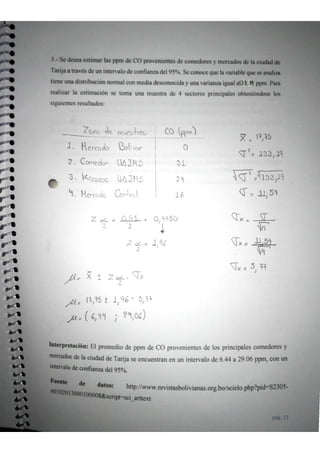 3.- Se desea estimar las ppm de CO provenientes de comedores y mercados de la ciudad de
Tarija a través de un intervalo de confianza del 95%. Se conoce que la variable que se analiza
tiene una distribución normal con media desconocida y una varianza igual a ppm. Para
realizar la estimación se toma una muestra de 4 sectores principales obteniéndose los
siguientes resultados:
Zona de muestreo CO (ppm)
1. Mercado Bolivar 0
2. Comedor UAJMS 31
3. Kioscos UAJMS 24
4. Mercado Central 16
x̄ = 17,75
σ² = 133,29
√σ² = √133,29
σ = 11,54
Z α/2 = 0,95/2 = 0,4750
↓
Z α/2 = 1,96
σx = σ/√n
σx = 11,54/√4
σx = 5,77
μ = x̄ ± Z α/2 · σx
μ = 17,75 ± 1,96 · 5,77
μ = ( 6,44 ; 29,06)
Interpretación: El promedio de ppm de CO provenientes de los principales comedores y
mercados de la ciudad de Tarija se encuentran en un intervalo de 6.44 a 29.06 ppm, con un
intervalo de confianza del 95%.
Fuente de datos: http://www.revistasbolivianas.org.bo/scielo.php?pid=S2305-
&script=sci_arttext
pág. 13